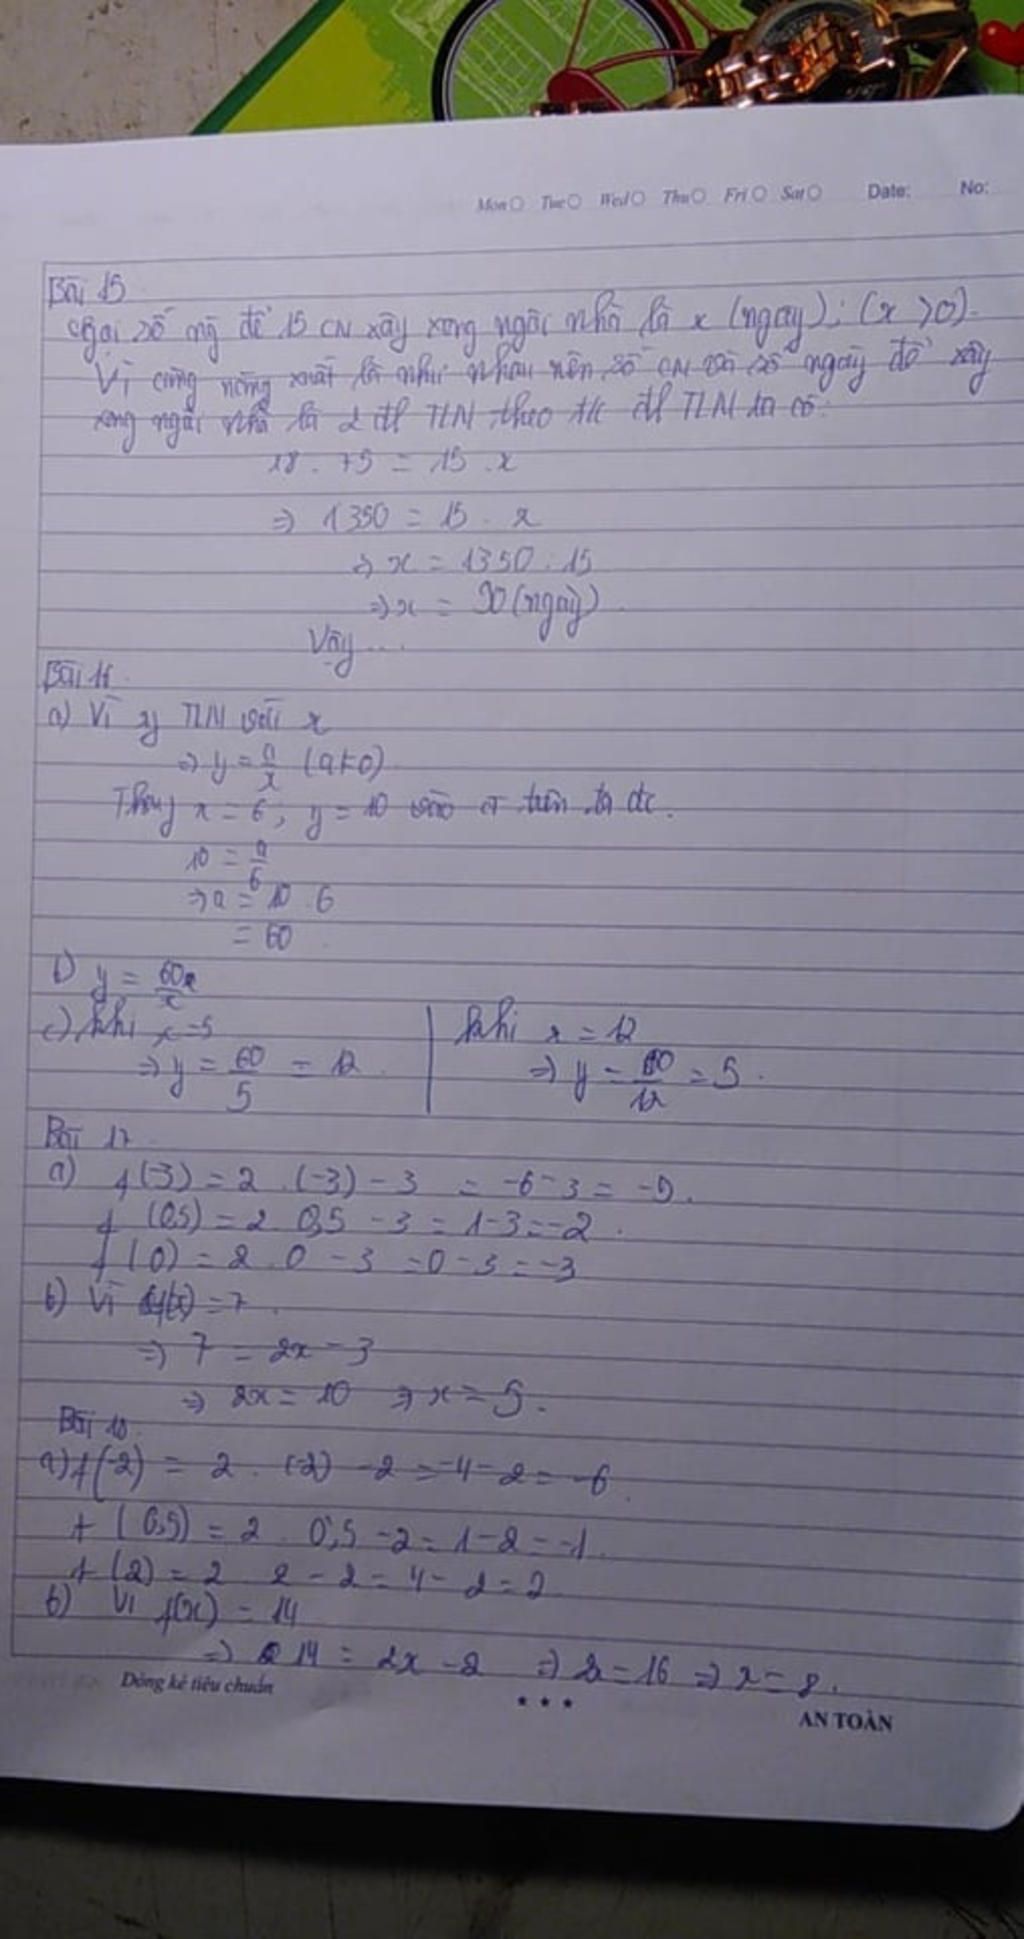 Mon Tue Wed Thu Fri Sat Date: No:
Bài 15
Gọi số ng để 15 CN xây xong ngôi nhà là x (ngày); (x > 0).
Vì cùng năng xuất là như nhau nên số CN và số ngày để xây
xong ngôi nhà là 2 đl TLN theo t/c đl TLN ta có:
18 . 75 = 15 . x
=> 1350 = 15 . x
=> x = 1350 : 15
=> x = 90 (ngày).
Vậy ...
Bài 16.
a) Vì y TLN với x
=> y = a/x (a ≠ 0)
Thay x = 6; y = 10 vào CT trên ta đc.
10 = a/6
=> a = 10 . 6
= 60
b) y = 60/x
c) khi x = 5
=> y = 60/5 = 12
khi x = 12
=> y = 60/12 = 5.
Bài 17
a) f(-3) = 2 . (-3) - 3 = -6 - 3 = -9.
f(0,5) = 2 . 0,5 - 3 = 1 - 3 = -2.
f(0) = 2 . 0 - 3 = 0 - 3 = -3
b) Vì f(x) = 7.
=> 7 = 2x - 3
=> 2x = 10 => x = 5.
Bài 18.
a) f(-2) = 2 . (-2) - 2 = -4 - 2 = -6.
f(0,5) = 2 . 0,5 - 2 = 1 - 2 = -1.
f(2) = 2 . 2 - 2 = 4 - 2 = 2
b) Vì f(x) = 14
=> 14 = 2x - 2 => 2x = 16 => x = 8.
Dòng kẻ tiêu chuẩn
AN TOÀN